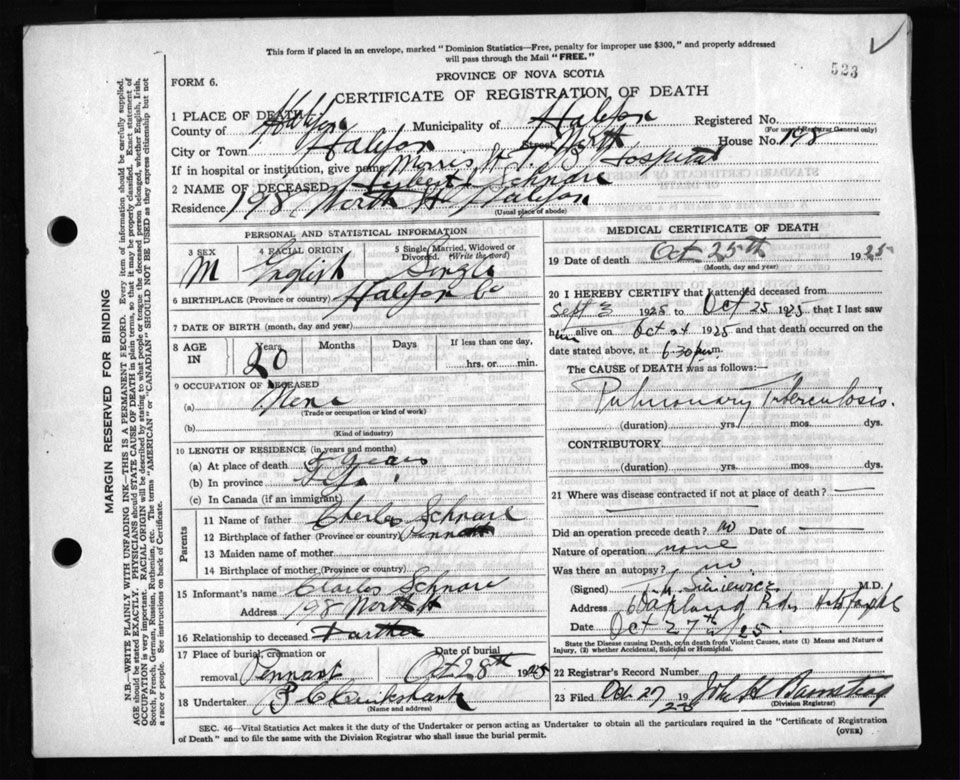 This form if placed in an envelope, marked "Dominion Statistics—Free, penalty for improper use $300," and properly addressed
will pass through the Mail "FREE."
523
FORM 6.
PROVINCE OF NOVA SCOTIA
CERTIFICATE OF REGISTRATION OF DEATH
1 PLACE OF DEATH
County of Halifax Municipality of Halifax Registered No.
(For use of Registrar General only)
City or Town Halifax Street North House No. 198
If in hospital or institution, give name Morris St. T. B. Hospital
2 NAME OF DECEASED Schnare
Residence 198 North St Halifax
(Usual place of abode)
PERSONAL AND STATISTICAL INFORMATION
3 SEX M 4 RACIAL ORIGIN English 5 Single, Married, Widowed or Divorced. (Write the word) Single
6 BIRTHPLACE (Province or country) Halifax Co
7 DATE OF BIRTH (month, day and year)
8 AGE IN Years 20 Months Days If less than one day, hrs. or min.
9 OCCUPATION OF DECEASED
(a) None
(Trade or occupation or kind of work)
(b)
(Kind of industry)
10 LENGTH OF RESIDENCE (in years and months)
(a) At place of death years
(b) In province
(c) In Canada (if an immigrant)
Parents
11 Name of father Charles Schnare
12 Birthplace of father (Province or country) Pennant
13 Maiden name of mother
14 Birthplace of mother (Province or country)
15 Informant's name Charles Schnare
Address 198 North St
16 Relationship to deceased Farther
17 Place of burial, cremation or removal Pennant Date of burial Oct 28th 1925
18 Undertaker Cruikshank
(Name and address)
MEDICAL CERTIFICATE OF DEATH
19 Date of death Oct 25th 1925
(Month, day and year)
20 I HEREBY CERTIFY that I attended deceased from
Sept 3 1925 to Oct 25 1925, that I last saw
him alive on Oct 24 1925 and that death occurred on the
date stated above, at 6.30 p.m.
The CAUSE of DEATH was as follows:—
Pulmonary Tuberculosis.
(duration) yrs. mos. dys.
CONTRIBUTORY
(duration) yrs. mos. dys.
21 Where was disease contracted if not at place of death?
Did an operation precede death? no Date of
Nature of operation none
Was there an autopsy? no
(Signed) M.D.
Address
Date Oct 27th 25
State the Disease causing Death, or in death from Violent Causes, state (1) Means and Nature of
Injury, (2) whether Accidental, Suicidal or Homicidal.
22 Registrar's Record Number
23 Filed Oct 27 1925 John H Barnstead
(Division Registrar)
SEC. 46—Vital Statistics Act makes it the duty of the Undertaker or person acting as Undertaker to obtain all the particulars required in the "Certificate of Registration
of Death" and to file the same with the Division Registrar who shall issue the burial permit.
(OVER)
MARGIN RESERVED FOR BINDING
N.B.—WRITE PLAINLY WITH UNFADING INK—THIS IS A PERMANENT RECORD. Every item of information should be carefully supplied.
AGE should be stated EXACTLY. PHYSICIANS should STATE CAUSE OF DEATH in plain terms, so that it may be properly classified. Exact statement of
OCCUPATION is very important. RACIAL ORIGIN will be described by stating to what people or tongue the deceased person belonged, whether English, Irish,
Scotch, French, German, Russian, Ruthenian, etc. The terms "AMERICAN" or "CANADIAN" SHOULD NOT BE USED as they express citizenship but not
a race or people. See instructions on back of Certificate.